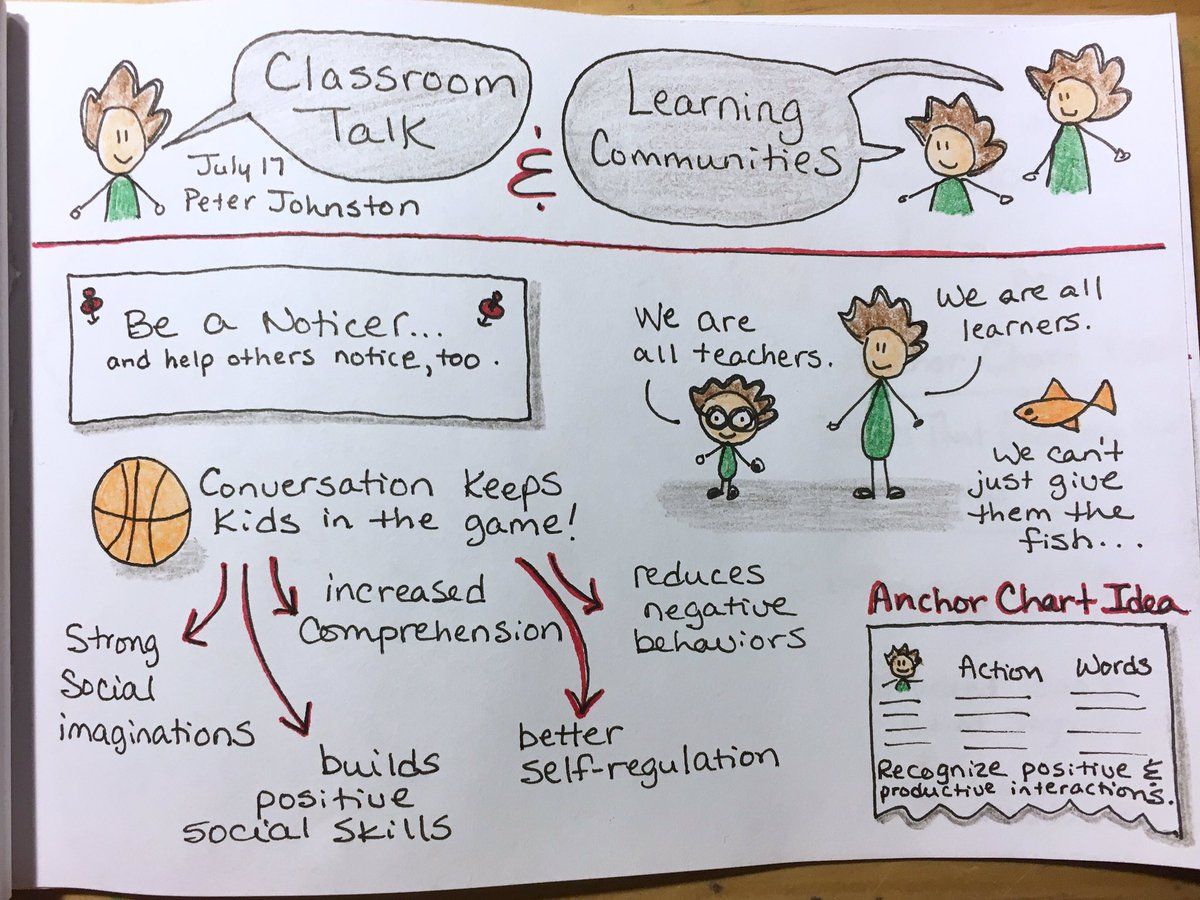 Classroom
Talk
July 17
Peter Johnston
&
Learning
Communities
Be a Noticer...
and help others notice, too.
We are
all teachers.
We are all
learners.
We can't
just give
them the
fish...
Conversation keeps
kids in the game!
Strong
Social
imaginations
builds
positive
social skills
increased
Comprehension
better
self-regulation
reduces
negative
behaviors
Anchor Chart Idea
Action Words
Recognize positive &
productive interactions.